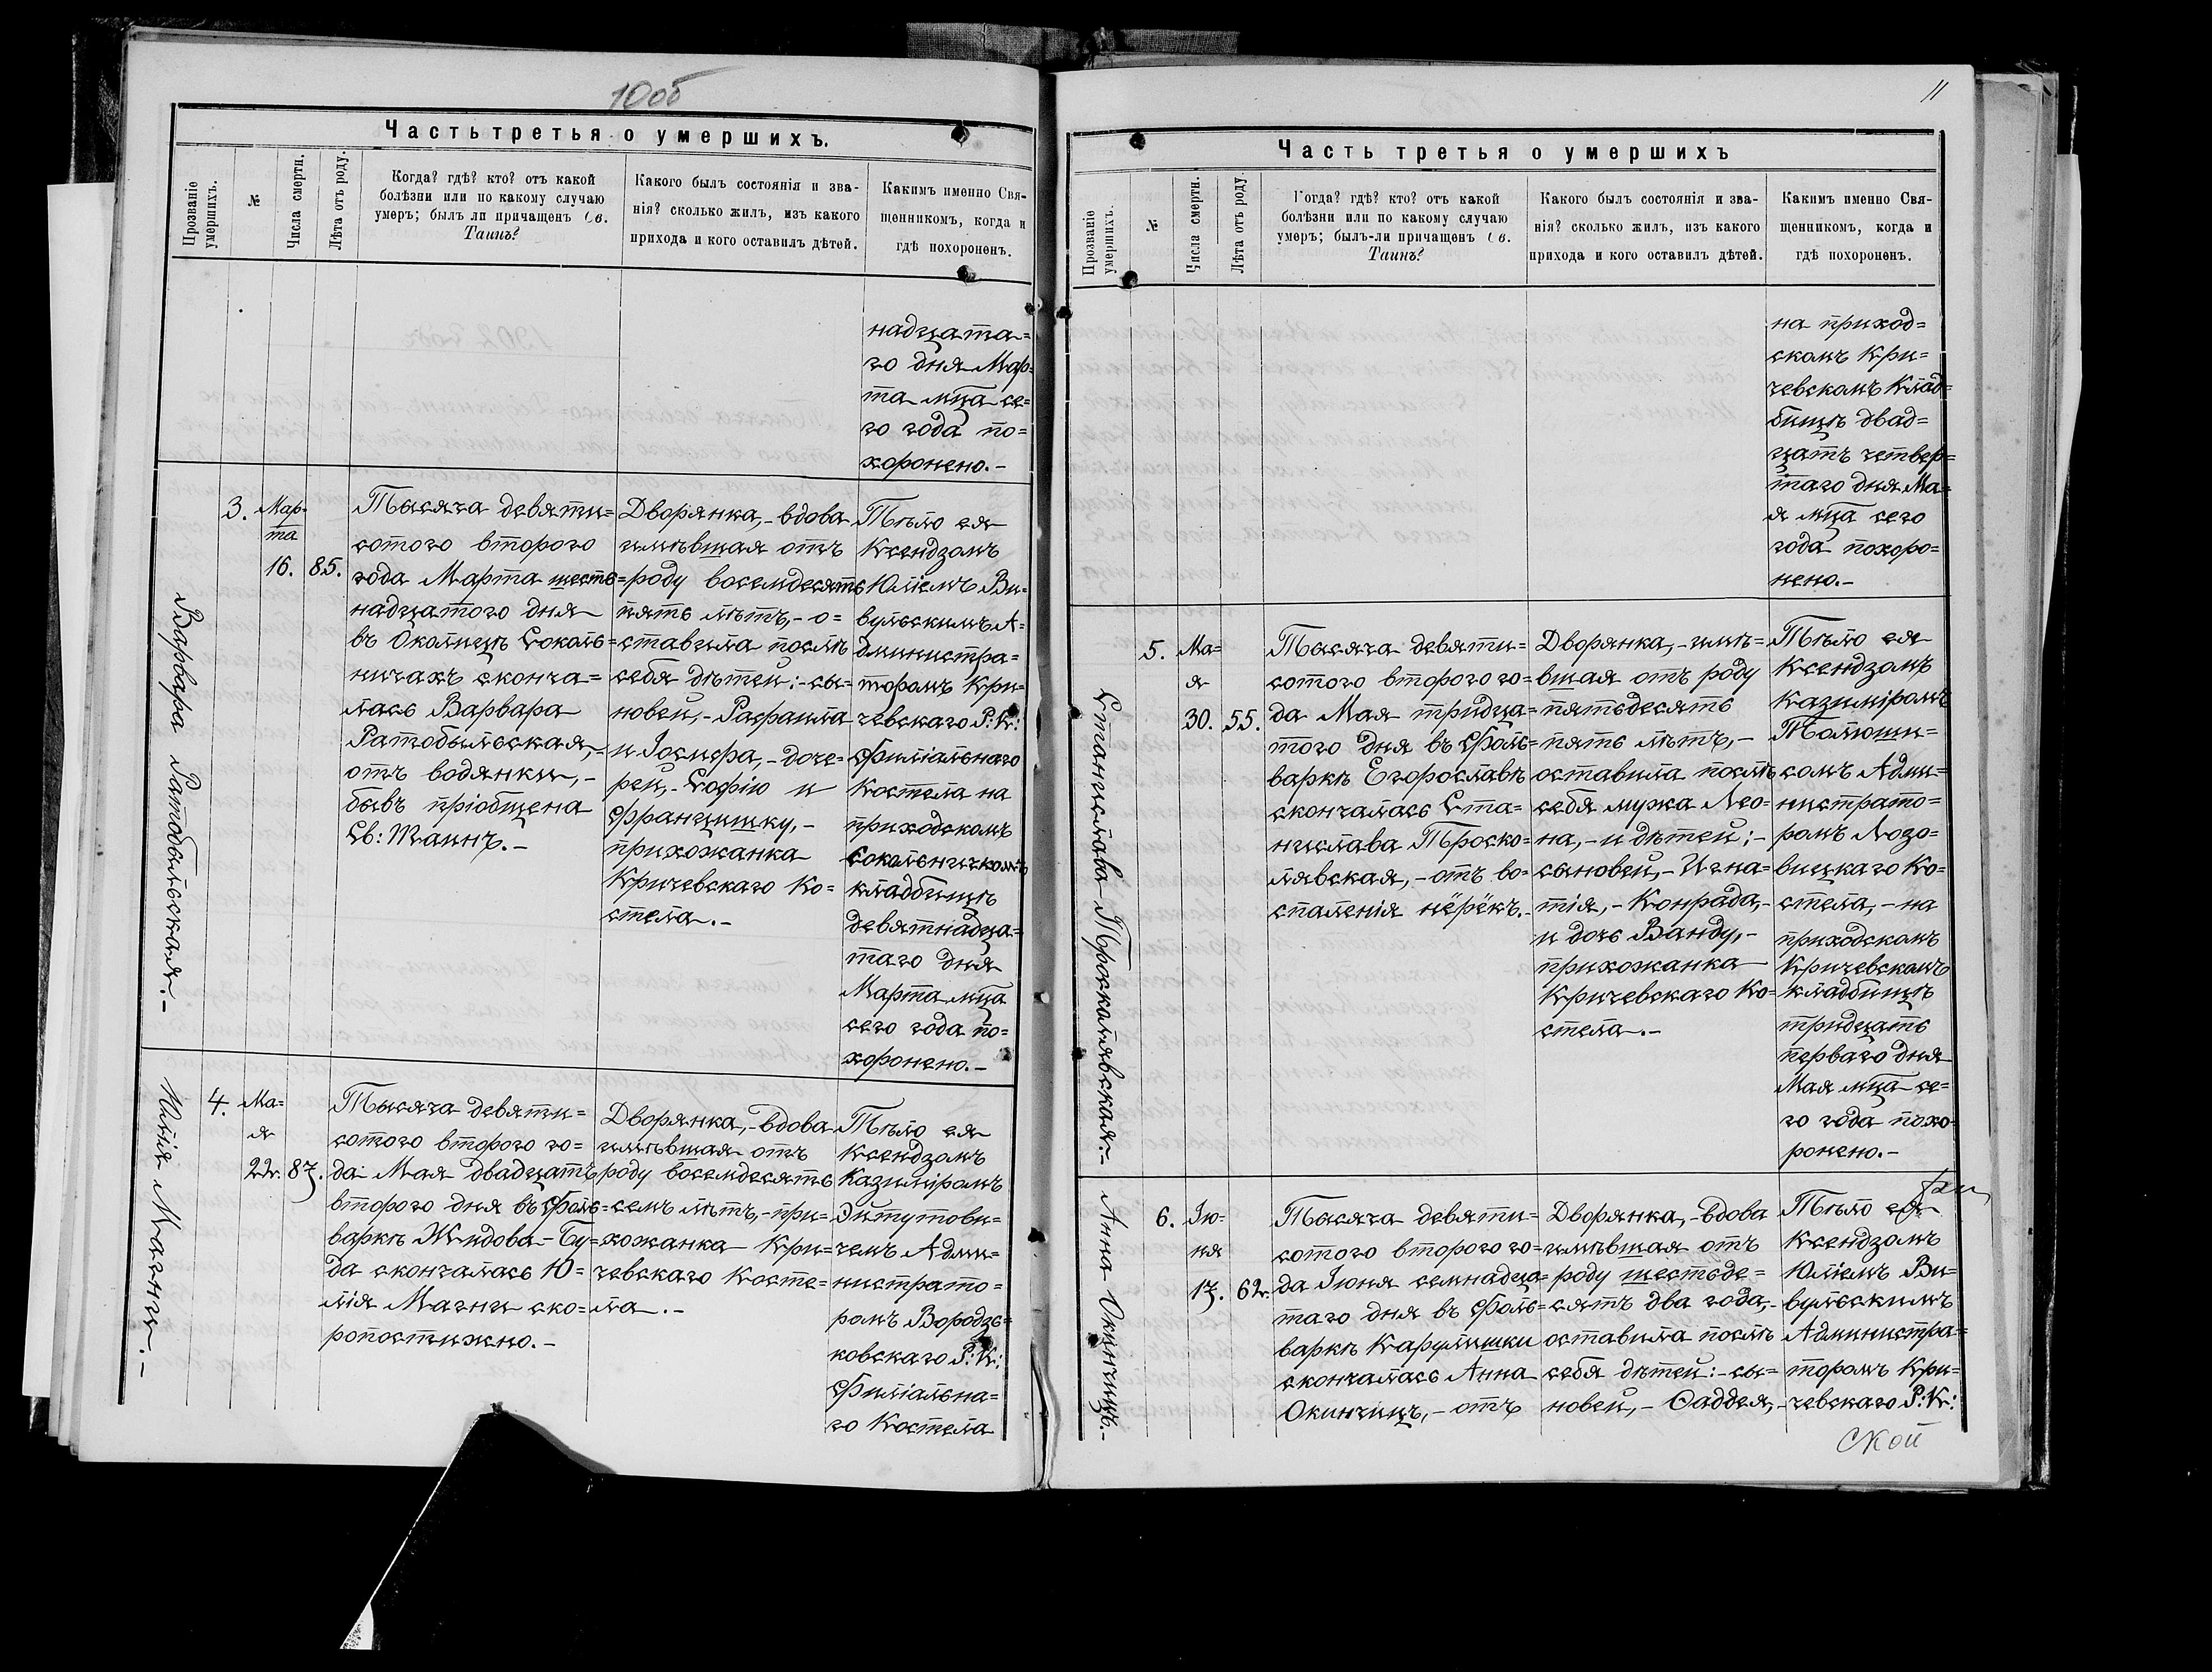 10об
Часть третья о умершихъ.
Прозваніе умершихъ.
№
Числа смерти.
Лѣта отъ роду.
Когда? гдѣ? кто? отъ какой
болѣзни или по какому случаю
умеръ; былъ ли причащенъ Св.
Таинъ?
Какого былъ состоянія и зва-
нія? сколько жилъ, изъ какого
прихода и кого оставилъ дѣтей.
Какимъ именно Свя-
щенникомъ, когда и
гдѣ похороненъ.
надцата=
го дня Мар=
та мца се=
го года по=
хоронено.-
Варвара Ратобыльская.-
3.
Мар-
та
16.
85.
Тысяча девяти=
сотого второго
года Марта шест=
надцатого дня
въ Околицѣ Соколь=
ничахъ сконча=
лась Варвара
Ратобыльская,-
отъ водянки,-
бывъ пріобщена
Св: Таинъ.-
Дворянка,-вдова
имѣвшая отъ
роду восемдесятъ
пять лѣтъ,-о=
ставила послѣ
себя дѣтей:-сы=
новей,-Рафаила
и Іосифа,-доче=
рей,-Софію и
Францишку,-
прихожанка
Кричевскаго Ко=
стела.-
Тѣло ея
Ксендзомъ
Юліемъ Ви=
бульскимъ А=
дминистра=
торомъ Кри=
чевскаго Р:К:
Филіальнаго
Костела на
приходскомъ
Сокольничскомъ
кладбищѣ
девятнадца=
таго дня
Марта мца
сего года по=
хоронено.-
Юлія Магни.-
4.
Ма=
я
22.
87.
Тысяча девяти=
сотого второго го=
да Мая двадцать
второго дня въ Фоль=
варкѣ Жидова-Бу=
да скончалась Ю=
лія Магни ско=
ропостижно.-
Дворянка,-вдова
имѣвшая отъ
роду восемдесятъ
семь лѣтъ,-при=
хожанка Кри=
чевскаго Косте=
ла.-
Тѣло ея
Ксендзомъ
Казиміромъ
Эйтутови=
чемъ Адми=
нистрато=
ромъ Вородзь=
ковскаго Р:К:
Филіальна=
го Костела
11
Часть третья о умершихъ
Прозваніе умершихъ.
№
Числа смерти.
Лѣта отъ роду.
Когда? гдѣ? кто? отъ какой
болѣзни или по какому случаю
умеръ; былъ-ли причащенъ Св.
Таинъ?
Какого былъ состоянія и зва-
нія? сколько жилъ, изъ какого
прихода и кого оставилъ дѣтей.
Какимъ именно Свя-
щенникомъ, когда и
гдѣ похороненъ.
на приход=
скомъ Кри=
чевскомъ Клад=
бищѣ двад=
цать четвер=
таго дня Ма=
я мца сего
года похоро=
нено.-
Станислава Просколявская.-
5.
Ма=
я
30.
55.
Тысяча девяти=
сотого второго го=
да Мая тридца=
того дня въ Фоль=
варкѣ Егорославѣ
скончалась Ста=
нислава Проско=
лявская,-отъ во=
спаленія
Дворянка,-имѣ=
вшая отъ роду
пятьдесятъ
пять лѣтъ,-
оставила послѣ
себя мужа Лео=
на,-и дѣтей;-
сыновей,-Игна=
тія,-Конрада,-
и дочь Ванду,-
прихожанка
Кричевскаго Ко=
стела.-
Тѣло ея
Ксендзомъ
Казиміромъ
Толюши=
сомъ Адми=
нистрато=
ромъ Лозо=
вицкаго Ко=
стела,-на
приходскомъ
Кричевскомъ
кладбищѣ
тридцать
перваго дня
Мая мца се=
го года похо=
ронено.-
Анна Окинчицъ.-
6.
Ію=
ня
17.
62.
Тысяча девяти=
сотого второго го=
да Іюня семнадца=
таго дня въ Фоль=
варкѣ Карулишки
скончалась Анна
Окинчицъ,-отъ
Дворянка,-вдова
имѣвшая отъ
роду шестьде=
сятъ два года,-
оставила послѣ
себя дѣтей:-сы=
новей,-Фаддея,-
Тѣло ея
Ксендзомъ
Юліемъ Ви=
бульскимъ
Администра=
торомъ Кри=
чевскаго Р:К:
ской